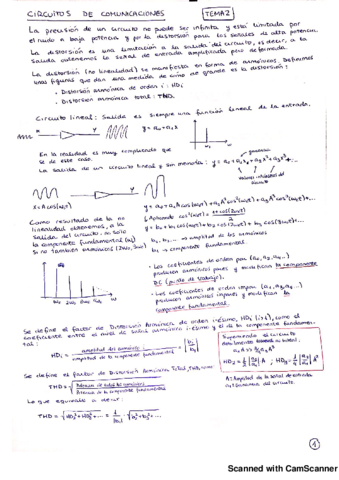 CIRCUITOS DE COMUNICACIONES TEMA 2
La precisión de un circuito no puede ser infinita y está limitada por
el ruido a baja potencia y por la distorsión para las señales de alta potencia.
La distorsión es una limitación a la salida del circuito, es decir, a la
salida obtenemos la señal de entrada amplificada pero deformada.
La distorsión (no linealidad) se manifiesta en forma de armónicos. Definimos
unas figuras que dan una medida de cómo de grande es la distorsión:
· Distorsión armónica de orden i: HDi
· Distorsión armónica total: THD
Circuito lineal: Salida es siempre una función lineal de la entrada.
x y y = a₀ + a₁x
En la realidad es muy complicado que
se dé este caso.
La salida de un circuito no lineal y sin memoria: y = a₀ + a₁x + a₂x² + a₃x³ + ...
x = A cos(ω₁t)
y = a₀ + a₁A cos(ω₁t) + a₂A² cos²(ω₁t) + a₃A³ cos³(ω₁t) + ...
Como resultado de la no
linealidad obtenemos, a la
salida del circuito, no solo
la componente fundamental (ω₁)
si no también armónicos (2ω₁, 3ω₁)
y = b₀ + b₁ cos(ω₁t) + b₂ cos(2ω₁t) + b₃ cos(3ω₁t) + ...
b₁, b₂, ... → amplitud de los armónicos
b₁ → componente fundamental
· Los coeficientes de orden par (a₂, a₄...)
producen armónicos pares y modifican la componente
DC (punto de trabajo).
· Los coeficientes de orden impar (a₃, a₅...)
producen armónicos impares y modifican la
componente fundamental.
ω₁ 2ω₁ 3ω₁ ω
Se define el factor de Distorsión Armónica de orden i-ésimo, HDi (i≠1), como el
cociente entre el nivel de señal armónico i-ésimo y el de la componente fundamen-
tal:
HDi = amplitud del armónico / amplitud de la componente fundamental = |bi/b₁|
Suponiendo el circuito
HD₂ = 1/2 |a₂/a₁| A ; HD₃ = 1/4 |a₃/a₁| A²
A: Amplitud de la señal de entrada
Se define el factor de Distorsión Armónica Total, THD, como
THD = √ Potencia de señal armónicos / Potencia de componente fundamental
Lo que equivale a decir:
THD = √HD₂² + HD₃² + ... = 1/|b₁| √b₂² + b₃² + ...
1
Scanned with CamScanner